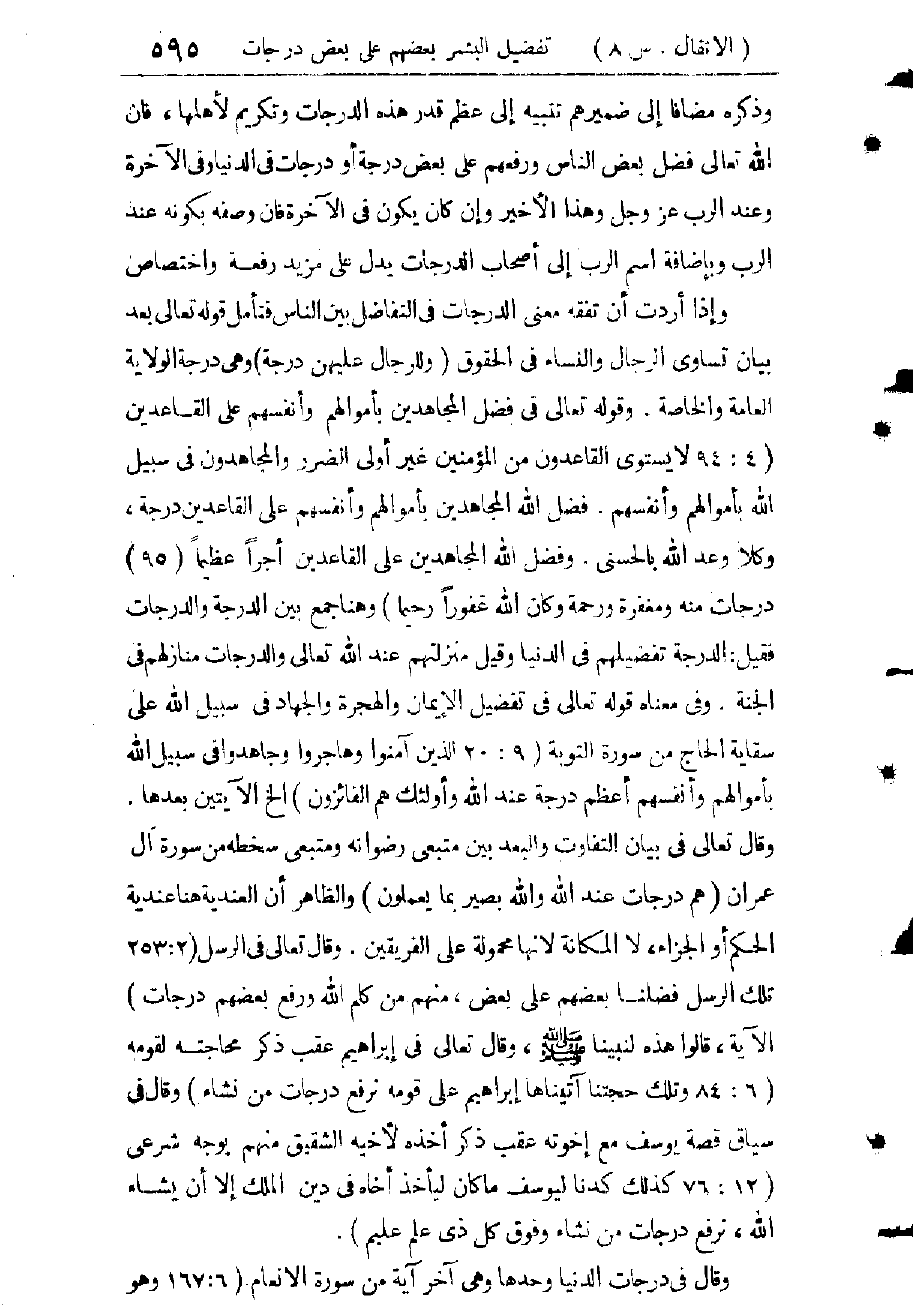 ( الانفال . س ٨ ) تفضيل البشر بعضهم على بعض درجات ٥٩٥
وذكره مضافا إلى ضميرهم تنبيه إلى عظم قدر هذه الدرجات وتكريم لأهلها ، فان
الله تعالى فضل بعض الناس ورفعهم على بعض درجة أو درجات فى الدنيا وفى الآخرة
وعند الرب عز وجل وهذا الأخير وإن كان يكون فى الآخرة فان وصفه بكونه عند
الرب وبإضافة اسم الرب إلى أصحاب الدرجات يدل على مزيد رفعة واختصاص
وإذا أردت أن تفقه معنى الدرجات فى التفاضل بين الناس فتأمل قوله تعالى بعد
بيان تساوى الرجال والنساء فى الحقوق ( وللرجال عليهن درجة ) وهى درجة الولاية
العامة والخاصة . وقوله تعالى فى فضل المجاهدين بأموالهم وأنفسهم على القاعدين
( ٤ : ٩٤ لا يستوى القاعدون من المؤمنين غير أولى الضرر والمجاهدون فى سبيل
الله بأموالهم وأنفسهم . فضل الله المجاهدين بأموالهم وأنفسهم على القاعدين درجة ،
وكلا وعد الله بالحسنى . وفضل الله المجاهدين على القاعدين أجراً عظيماً ( ٩٥ )
درجات منه ومغفرة ورحمة وكان الله غفوراً رحيما ) وهنا جمع بين الدرجة والدرجات
فقيل : الدرجة تفضيلهم فى الدنيا وقيل منزلتهم عند الله تعالى والدرجات منازلهم فى
الجنة . وفى معناه قوله تعالى فى تفضيل الإيمان والهجرة والجهاد فى سبيل الله على
سقاية الحاج من سورة التوبة ( ٩ : ٢٠ الذين آمنوا وهاجروا وجاهدوا فى سبيل الله
بأموالهم وأنفسهم أعظم درجة عند الله وأولئك هم الفائزون ) الخ الآيتين بعدها .
وقال تعالى فى بيان التفاوت والبعد بين متبعى رضوانه ومتبعى سخطه من سورة آل
عمران ( هم درجات عند الله والله بصير بما يعملون ) والظاهر أن العندية هنا عندية
الحكم أو الجزاء ، لا المكانة لانها محمولة على الفريقين . وقال تعالى فى الرسل ( ٢ : ٢٥٣
تلك الرسل فضلنا بعضهم على بعض ، منهم من كلم الله ورفع بعضهم درجات )
الآية ، قالوا هذه لنبينا ﷺ ، وقال تعالى فى إبراهيم عقب ذكر محاجته لقومه
( ٦ : ٨٤ وتلك حجتنا آتيناها إبراهيم على قومه نرفع درجات من نشاء ) وقال فى
سياق قصة يوسف مع إخوته عقب ذكر أخذه لأخيه الشقيق منهم بوجه شرعى
( ١٢ : ٧٦ كذلك كدنا ليوسف ما كان ليأخذ أخاه فى دين الملك إلا أن يشاء
الله ، نرفع درجات من نشاء وفوق كل ذى علم عليم ) .
وقال فى درجات الدنيا وحدها وهى آخر آية من سورة الانعام ( ٦ : ١٦٧ وهو